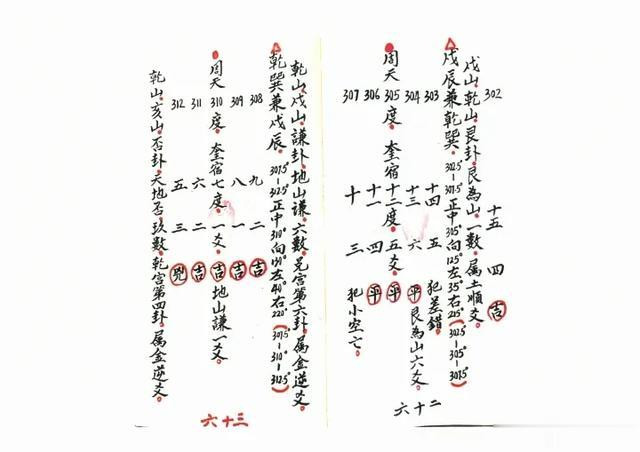 302 十五 四 吉
戌山乾山艮卦。艮為山。一數。属土順爻。
戌辰兼乾巽。302.5°-307.5°正中305°向125°左35°右215°(302.5°-305°-307.5°)
303 十四 五 犯差錯。
304 十三 六 平 艮為山六爻。
周天305度。奎宿十二度。五爻 平
306 十一 四 平
307 十 三 犯小空亡。
六十二
乾山戌山謙卦。地山謙。六數。兌宮第六卦。属金逆爻。
乾巽兼戌辰。307.5°-312.5°正中310°向130°左40°右220°(307.5°-310°-312.5°)
308 九 二 吉
309 八 一 吉
周天310度。奎宿七度。一爻 吉 地山謙一爻。
311 六 二 吉
312 五 三 兇
乾山亥山否卦。天地否。玖數。乾宮第四卦。属金逆爻。
六十三